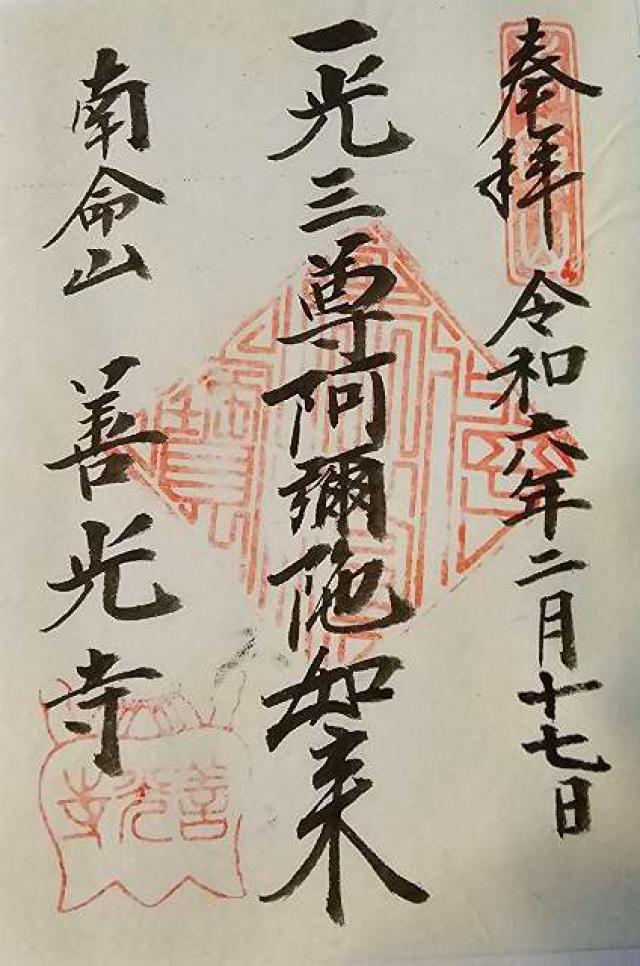 奉拝 令和六年二月十七日
一光三尊阿彌陀如来
南命山 善光寺
善光寺